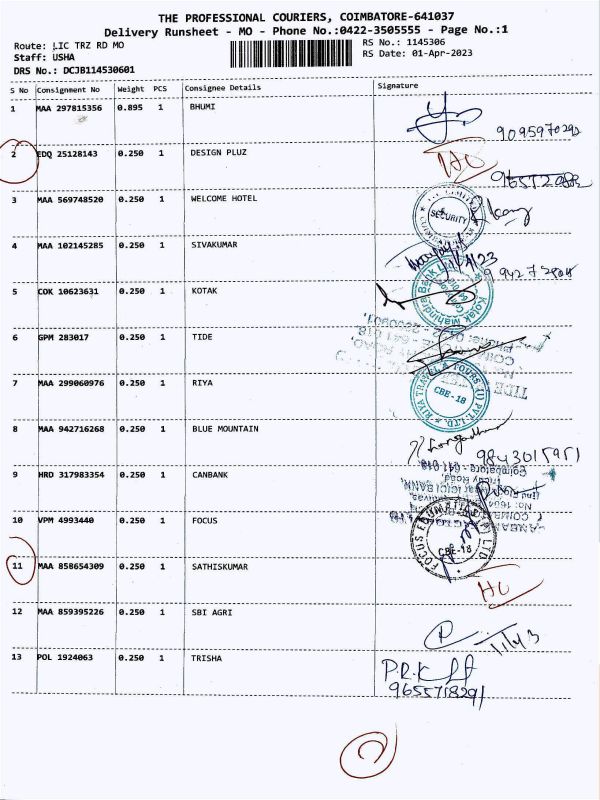 THE PROFESSIONAL COURIERS, COIMBATORE-641037
Delivery Runsheet - MO - Phone No.:0422-3505555 - Page No.:1
Route: LIC TRZ RD MO
Staff: USHA
DRS No.: DCJB114530601
RS No.: 1145306
RS Date: 01-Apr-2023
S No Consignment No Weight PCS Consignee Details Signature
1 MAA 297815356 0.895 1 BHUMI
9095970292
2 EDQ 25128143 0.250 1 DESIGN PLUZ
3 MAA 569748520 0.250 1 WELCOME HOTEL
SECURITY
4 MAA 102145285 0.250 1 SIVAKUMAR
5 COK 10623631 0.250 1 KOTAK
Kotak Mahindra Bank
6 GPM 283017 0.250 1 TIDE
7 MAA 299060976 0.250 1 RIYA
RIYA TRAVEL & TOURS (I) PVT. LTD.
CBE - 18
8 MAA 942716268 0.250 1 BLUE MOUNTAIN
9843015951
9 HRD 317983354 0.250 1 CANBANK
10 VPM 4993440 0.250 1 FOCUS
CBE-18
11 MAA 858654309 0.250 1 SATHISKUMAR
12 MAA 859395226 0.250 1 SBI AGRI
13 POL 1924063 0.250 1 TRISHA
9655718291